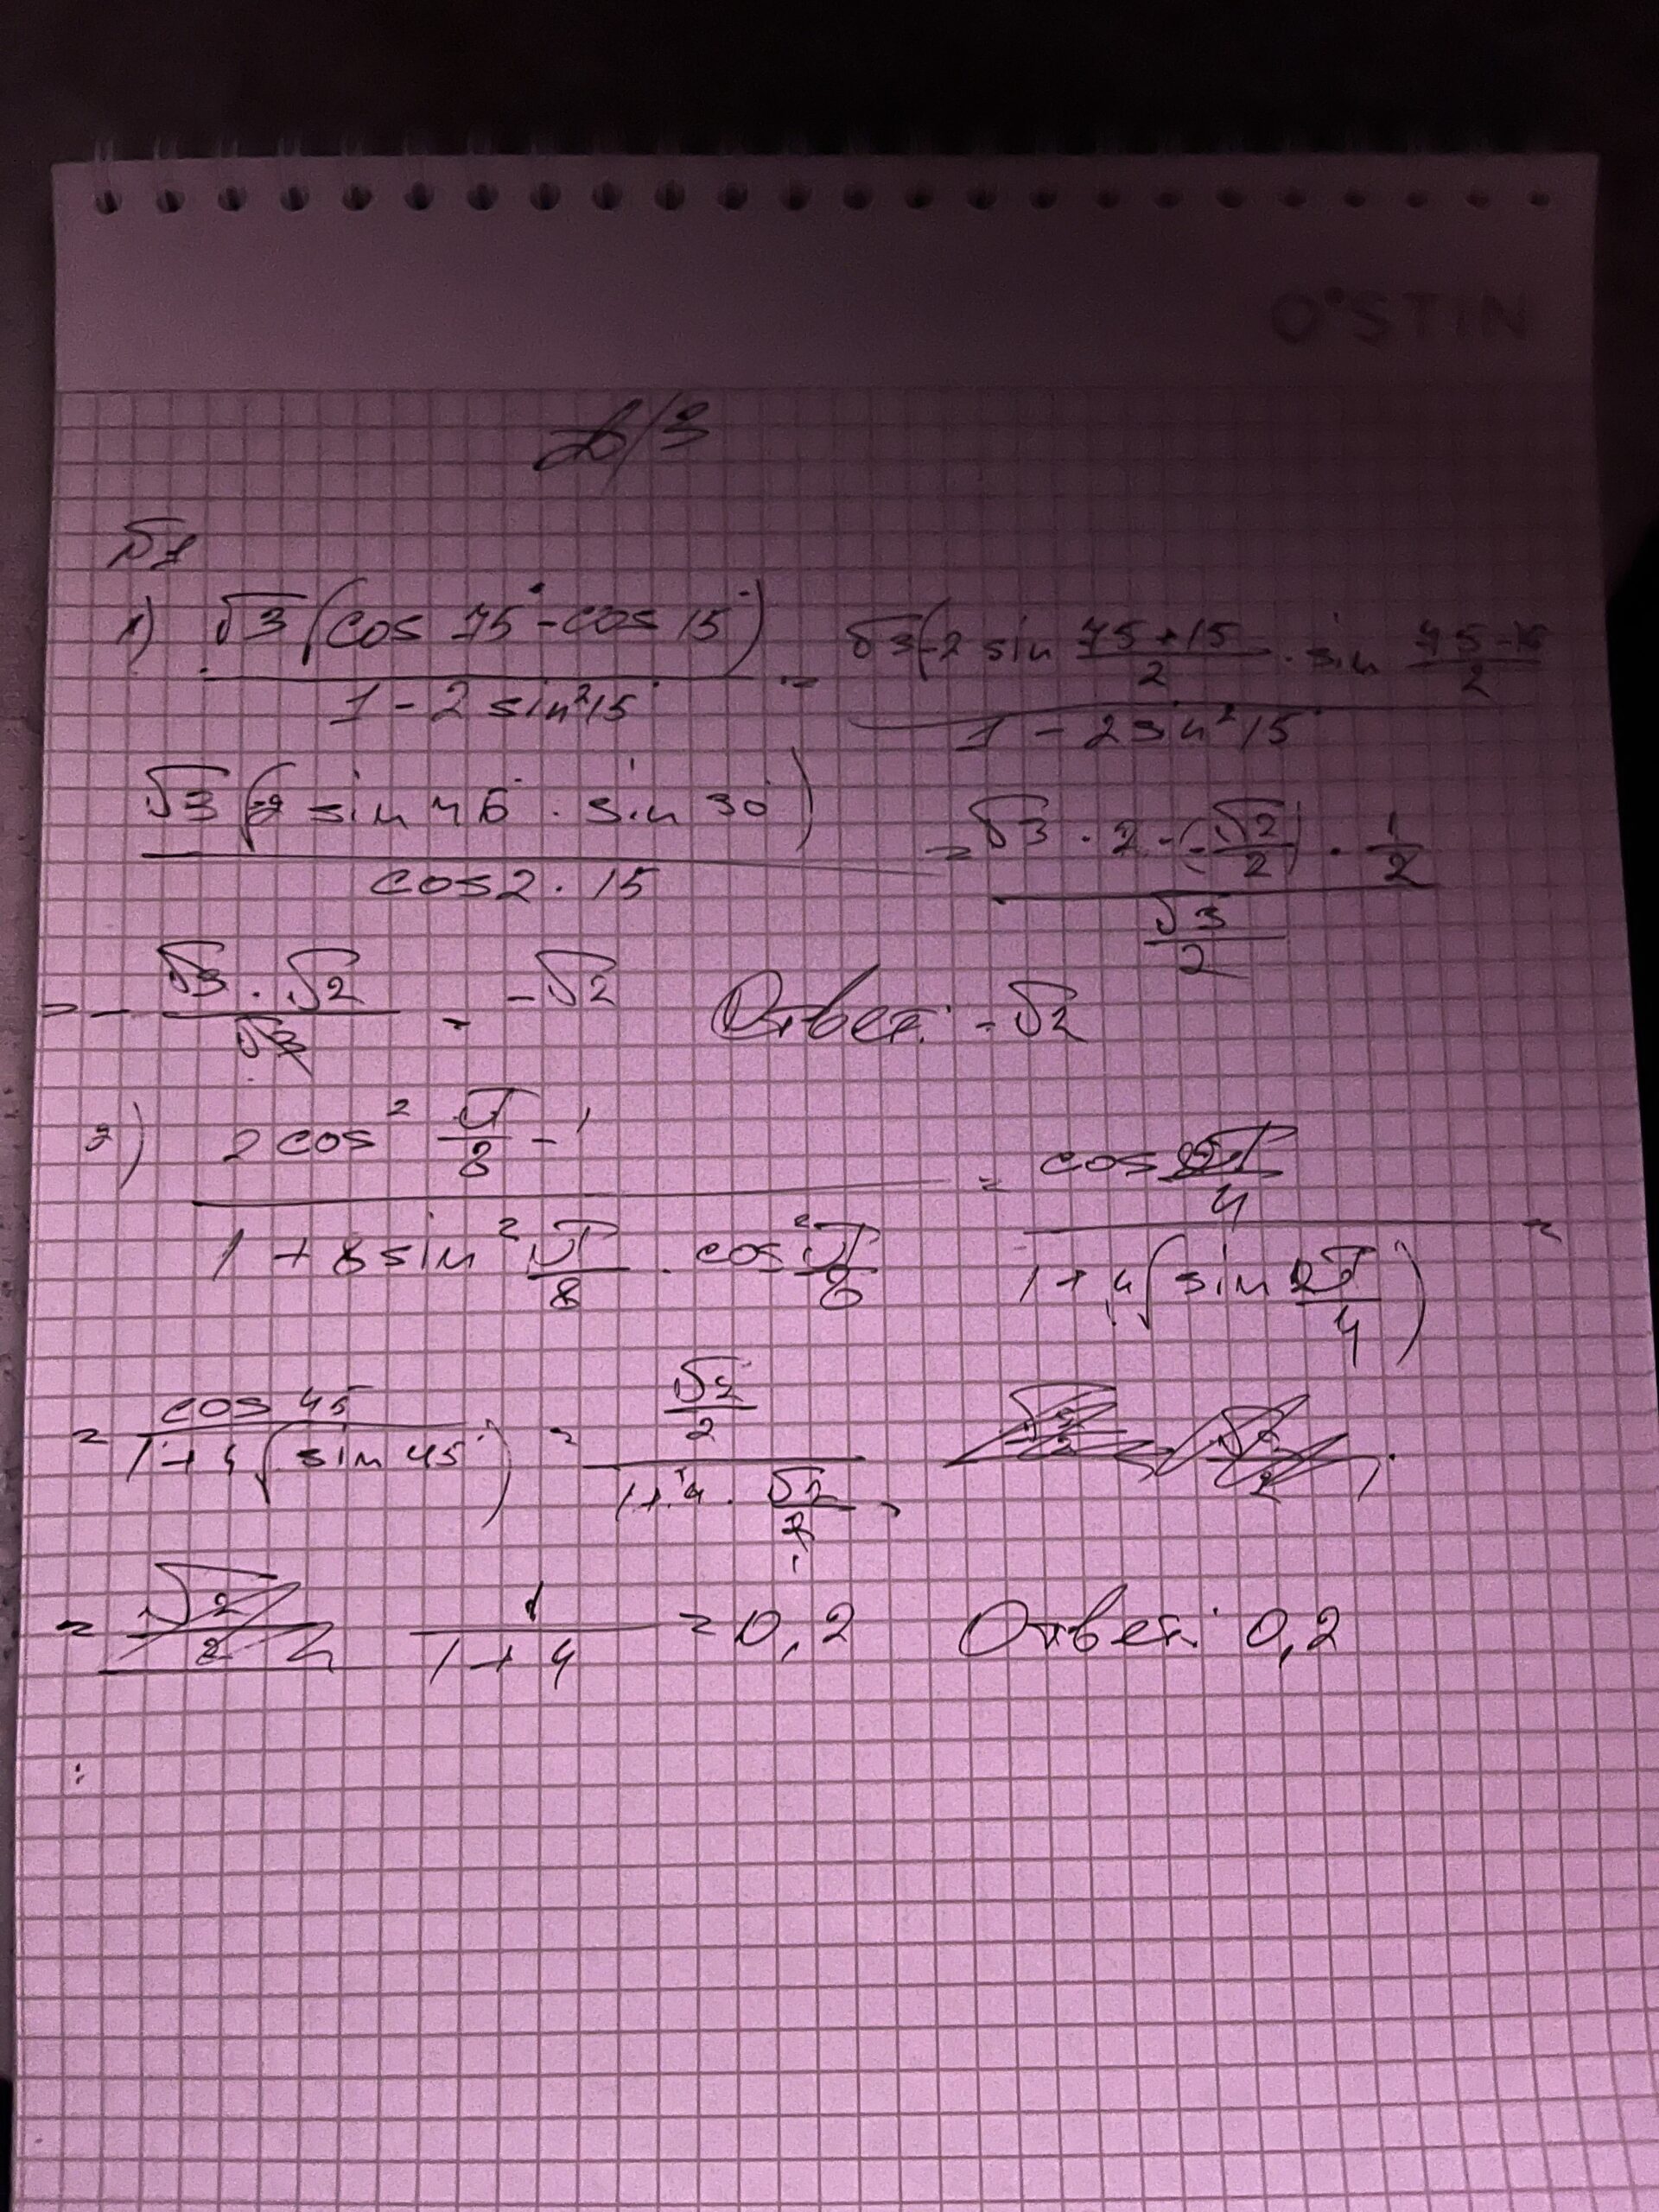 O'STIN
Д/З
№1
1) √3(cos 75° - cos 15°) / 1 - 2 sin²15° = √3(-2 sin 75+15/2 · sin 75-15/2 / 1 - 2 sin²15°
√3(-2 sin 45 · sin 30°) / cos 2 · 15 = √3 · 2 · (-√2/2) · 1/2 / √3/2
= - √3 · √2 / √3 = -√2 Ответ: -√2
2 cos² π/8 - 1 / 1 + 8 sin² π/8 · cos² π/8 = cos π/4 / 1 + 4(sin π/4) =
= cos 45 / 1 + 4(sin 45°) = √2/2 / 1 + 4 · √2/2 =
= 1 / 1 + 4 = 0,2 Ответ: 0,2